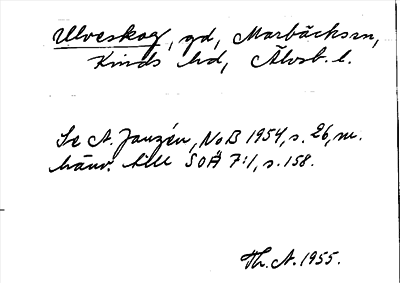 Ulveskog, gd, Marbäcks sn,
Kinds hd, Älvsb. l.
Se A. Janzén, NoB 1954, s. 26, m.
hänv. till SOÄ 7:1, s. 158.
Th. A. 1955.